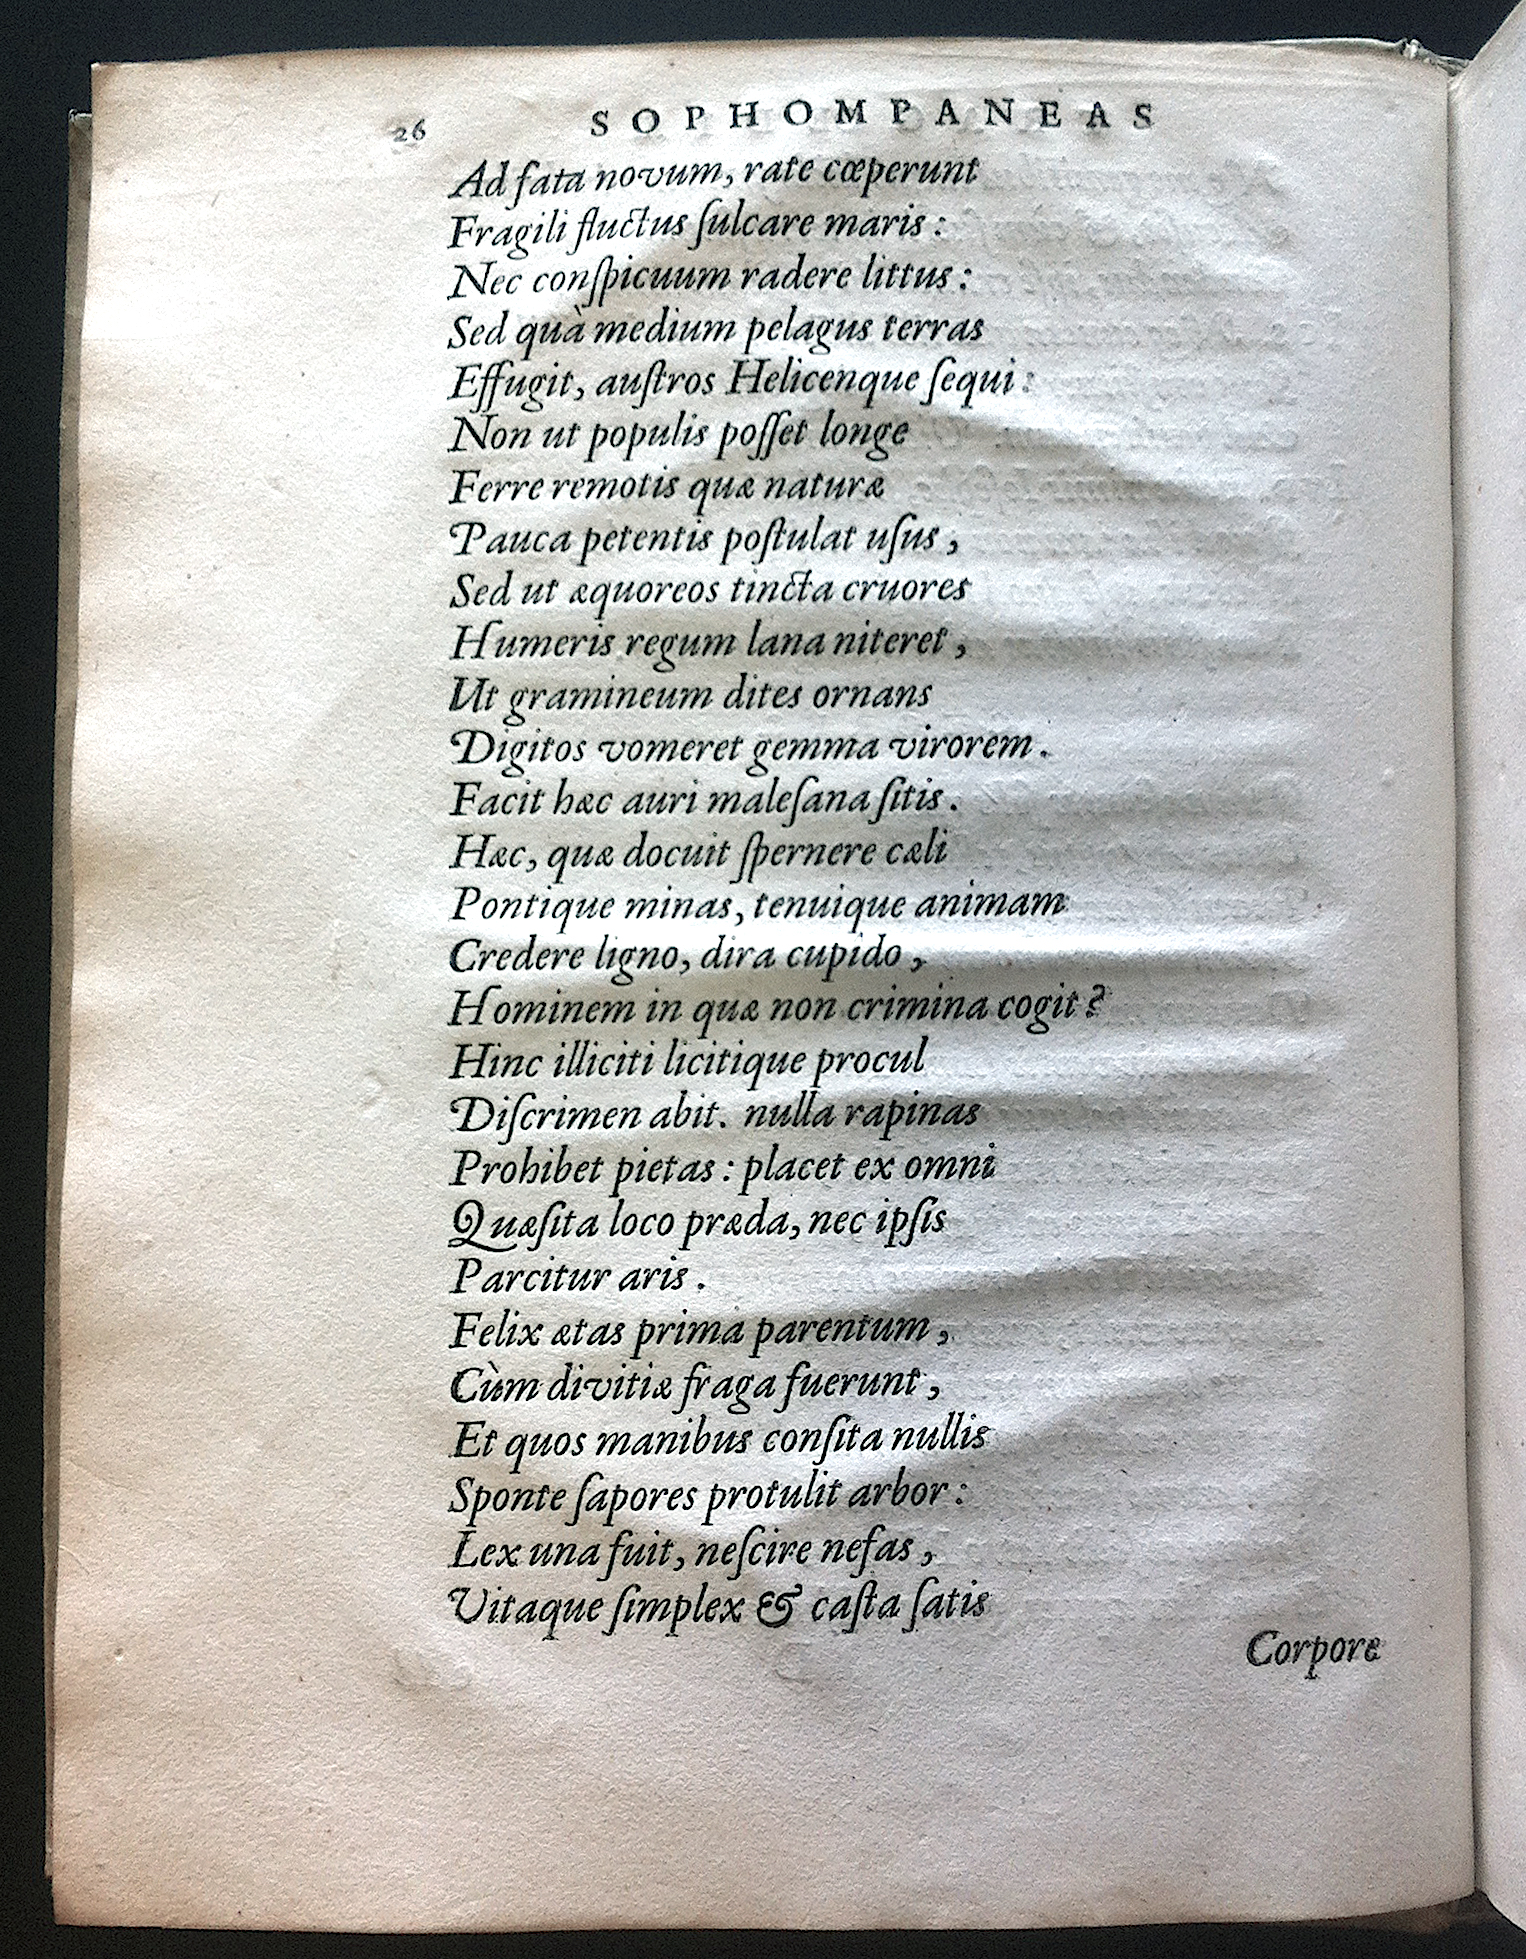 26 SOPHOMPANEAS
Ad fata novum, rate cœperunt
Fragili fluctus ſulcare maris :
Nec conſpicuum radere littus :
Sed quà medium pelagus terras
Effugit, auſtros Helicenque ſequi :
Non ut populis poſſet longe
Ferre remotis quæ naturæ
Pauca petentis poſtulat uſus ,
Sed ut æquoreos tincta cruores
Humeris regum lana niteret ,
Ut gramineum dites ornans
Digitos vomeret gemma virorem .
Facit hæc auri maleſana ſitis .
Hæc, quæ docuit ſpernere cæli
Pontique minas, tenuique animam
Credere ligno, dira cupido ,
Hominem in quæ non crimina cogit ?
Hinc illiciti licitique procul
Diſcrimen abit. nulla rapinas
Prohibet pietas : placet ex omni
Quæſita loco præda, nec ipſis
Parcitur aris .
Felix ætas prima parentum ,
Cùm divitiæ fraga fuerunt ,
Et quos manibus conſita nullis
Sponte ſapores protulit arbor :
Lex una fuit, neſcire nefas ,
Vitaque ſimplex & caſta ſatis
Corpore